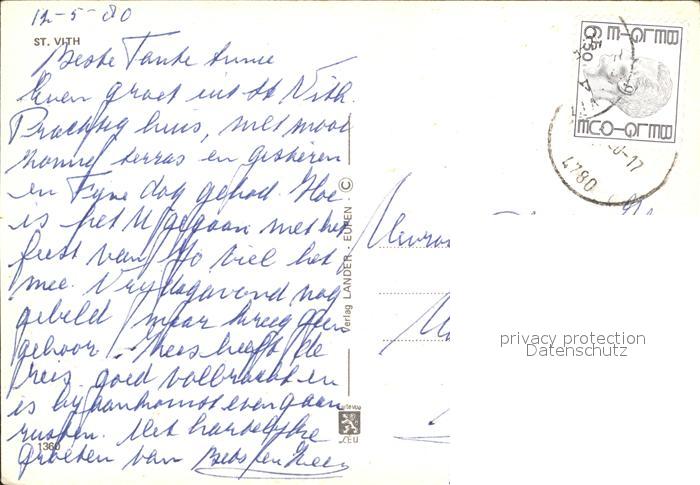 12-5-80
ST. VITH
Beste Tante Annie
Even groet uit St Vith.
Prachtig huis, met mooi
zonnig terras en gisteren
en fijne dag gehad. Hoe
is het U gegaan met het
feest van Jo viel het
mee. Vrijdagavond nog
gebeld maar kreeg geen
gehoor. Kees heeft de
reis goed volbracht en
is bij aankomst even gaan
rusten. Met hartelijke
groeten van Beds en Kees
1360
Verlag LANDER - EUPEN ©
CEU
Mevrou
BELGIË
6F50
BELGIQUE
-17
4780
privacy protection
Datenschutz